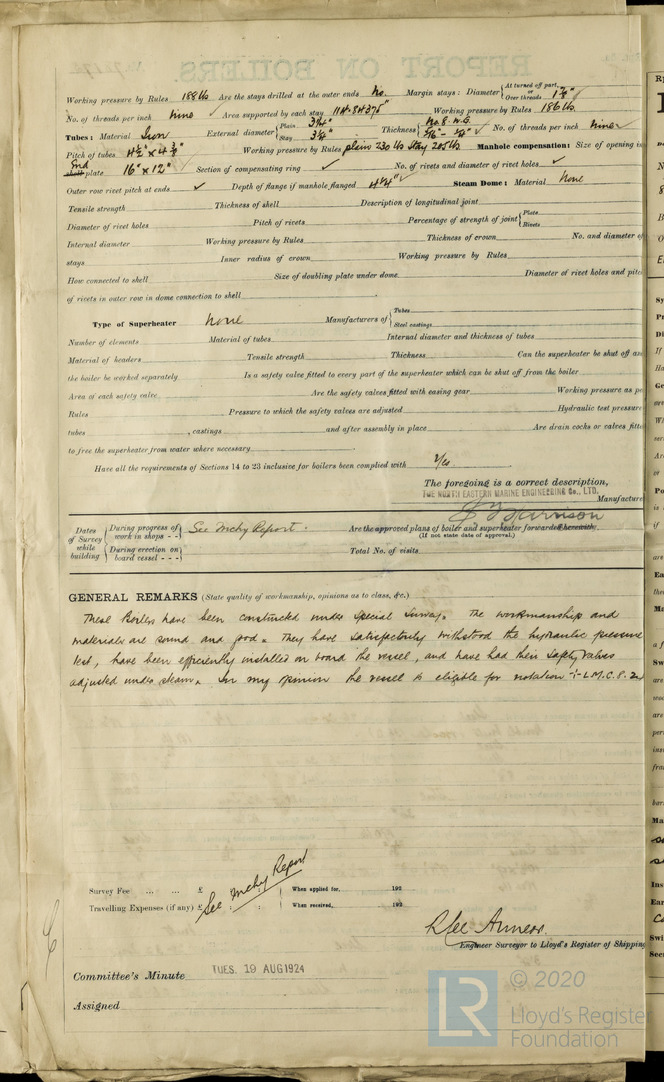 REPORT ON BOILERS.
Working pressure by Rules 188 lbs Are the stays drilled at the outer ends No. Margin stays: Diameter { At turned off part, or Over threads 1 7/8"
No. of threads per inch nine Area supported by each stay Working pressure by Rules 186 lbs.
Tubes: Material Iron External diameter { Plain 3 1/4" Stay 3 1/4" Thickness { No 8 W.G. 5/16" - No. of threads per inch nine
Pitch of tubes 4 1/2" x 4 3/8" Working pressure by Rules plain 230 lbs Stay 205 lbs Manhole compensation: Size of opening in
End shell plate 16" x 12" Section of compensating ring No. of rivets and diameter of rivet holes
Outer row rivet pitch at ends Depth of flange if manhole flanged Steam Dome: Material None
Tensile strength Thickness of shell Description of longitudinal joint
Diameter of rivet holes Pitch of rivets Percentage of strength of joint { Plate Rivets
Internal diameter Working pressure by Rules Thickness of crown No. and diameter of
stays Inner radius of crown Working pressure by Rules
How connected to shell Size of doubling plate under dome Diameter of rivet holes and pitc
of rivets in outer row in dome connection to shell
Type of Superheater None Manufacturers of { Tubes Steel castings
Number of elements Material of tubes Internal diameter and thickness of tubes
Material of headers Tensile strength Thickness Can the superheater be shut off an
the boiler be worked separately Is a safety valve fitted to every part of the superheater which can be shut off from the boiler
Area of each safety valve Are the safety valves fitted with easing gear Working pressure as pe
Rules Pressure to which the safety valves are adjusted Hydraulic test pressure
tubes , castings and after assembly in place Are drain cocks or valves fitte
to free the superheater from water where necessary
Have all the requirements of Sections 14 to 23 inclusive for boilers been complied with Yes.
The foregoing is a correct description,
THE NORTH EASTERN MARINE ENGINEERING Co., LTD.
Manufacture
Dates of Survey while building { During progress of work in shops - - } See Mchy Report. Are the approved plans of boiler and superheater forwarded herewith
(If not state date of approval.)
{ During erection on board vessel - - - } Total No. of visits
GENERAL REMARKS (State quality of workmanship, opinions as to class, &c.)
These Boilers have been constructed under Special Survey. The workmanship and
materials are sound and good. They have satisfactorily withstood the hydraulic pressure
test, have been efficiently installed on board the vessel, and have had their safety valves
adjusted under steam. In my opinion the vessel is eligible for notation + L.M.C. 8. 24
Survey Fee ... ... £ See Mchy Report When applied for, 192
Travelling Expenses (if any) £ When received, 192
Engineer Surveyor to Lloyd's Register of Shipping
Committee's Minute TUES. 19 AUG 1924
Assigned
LR © 2020
Lloyd's Register
Foundation